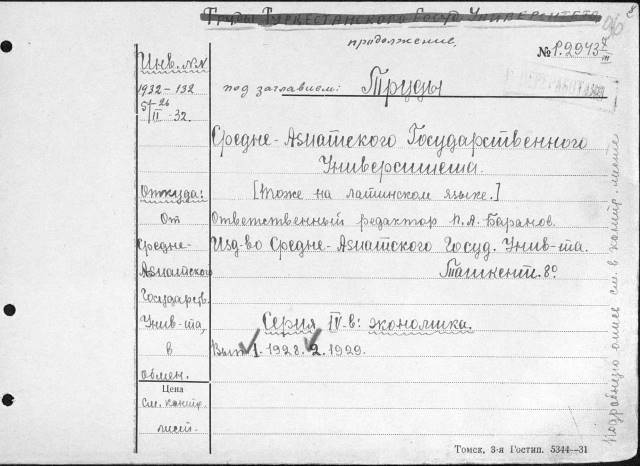 Труды Туркестанского Госуд. Университета
продолжение,
№ 1.2943
Инв. №№
1932 – 132
под заглавием: Труды
Средне-Азиатского Государственного
Университета.
Откуда:
[тоже на латинском языке.]
От
Ответственный редактор П.А. Баранов.
Средне-
Изд-во Средне-Азиатского Госуд. Унив-та.
Азиатского
Ташкент. 8º
Государств.
Унив-та,
Серия IV-в: экономика.
в
Вып. 1. 1928. 2. 1929.
обмен.
Цена
См. контр.
лист.
Томск, 3-я Гостип. 5344—31
Подробную опись см. в контр. листе